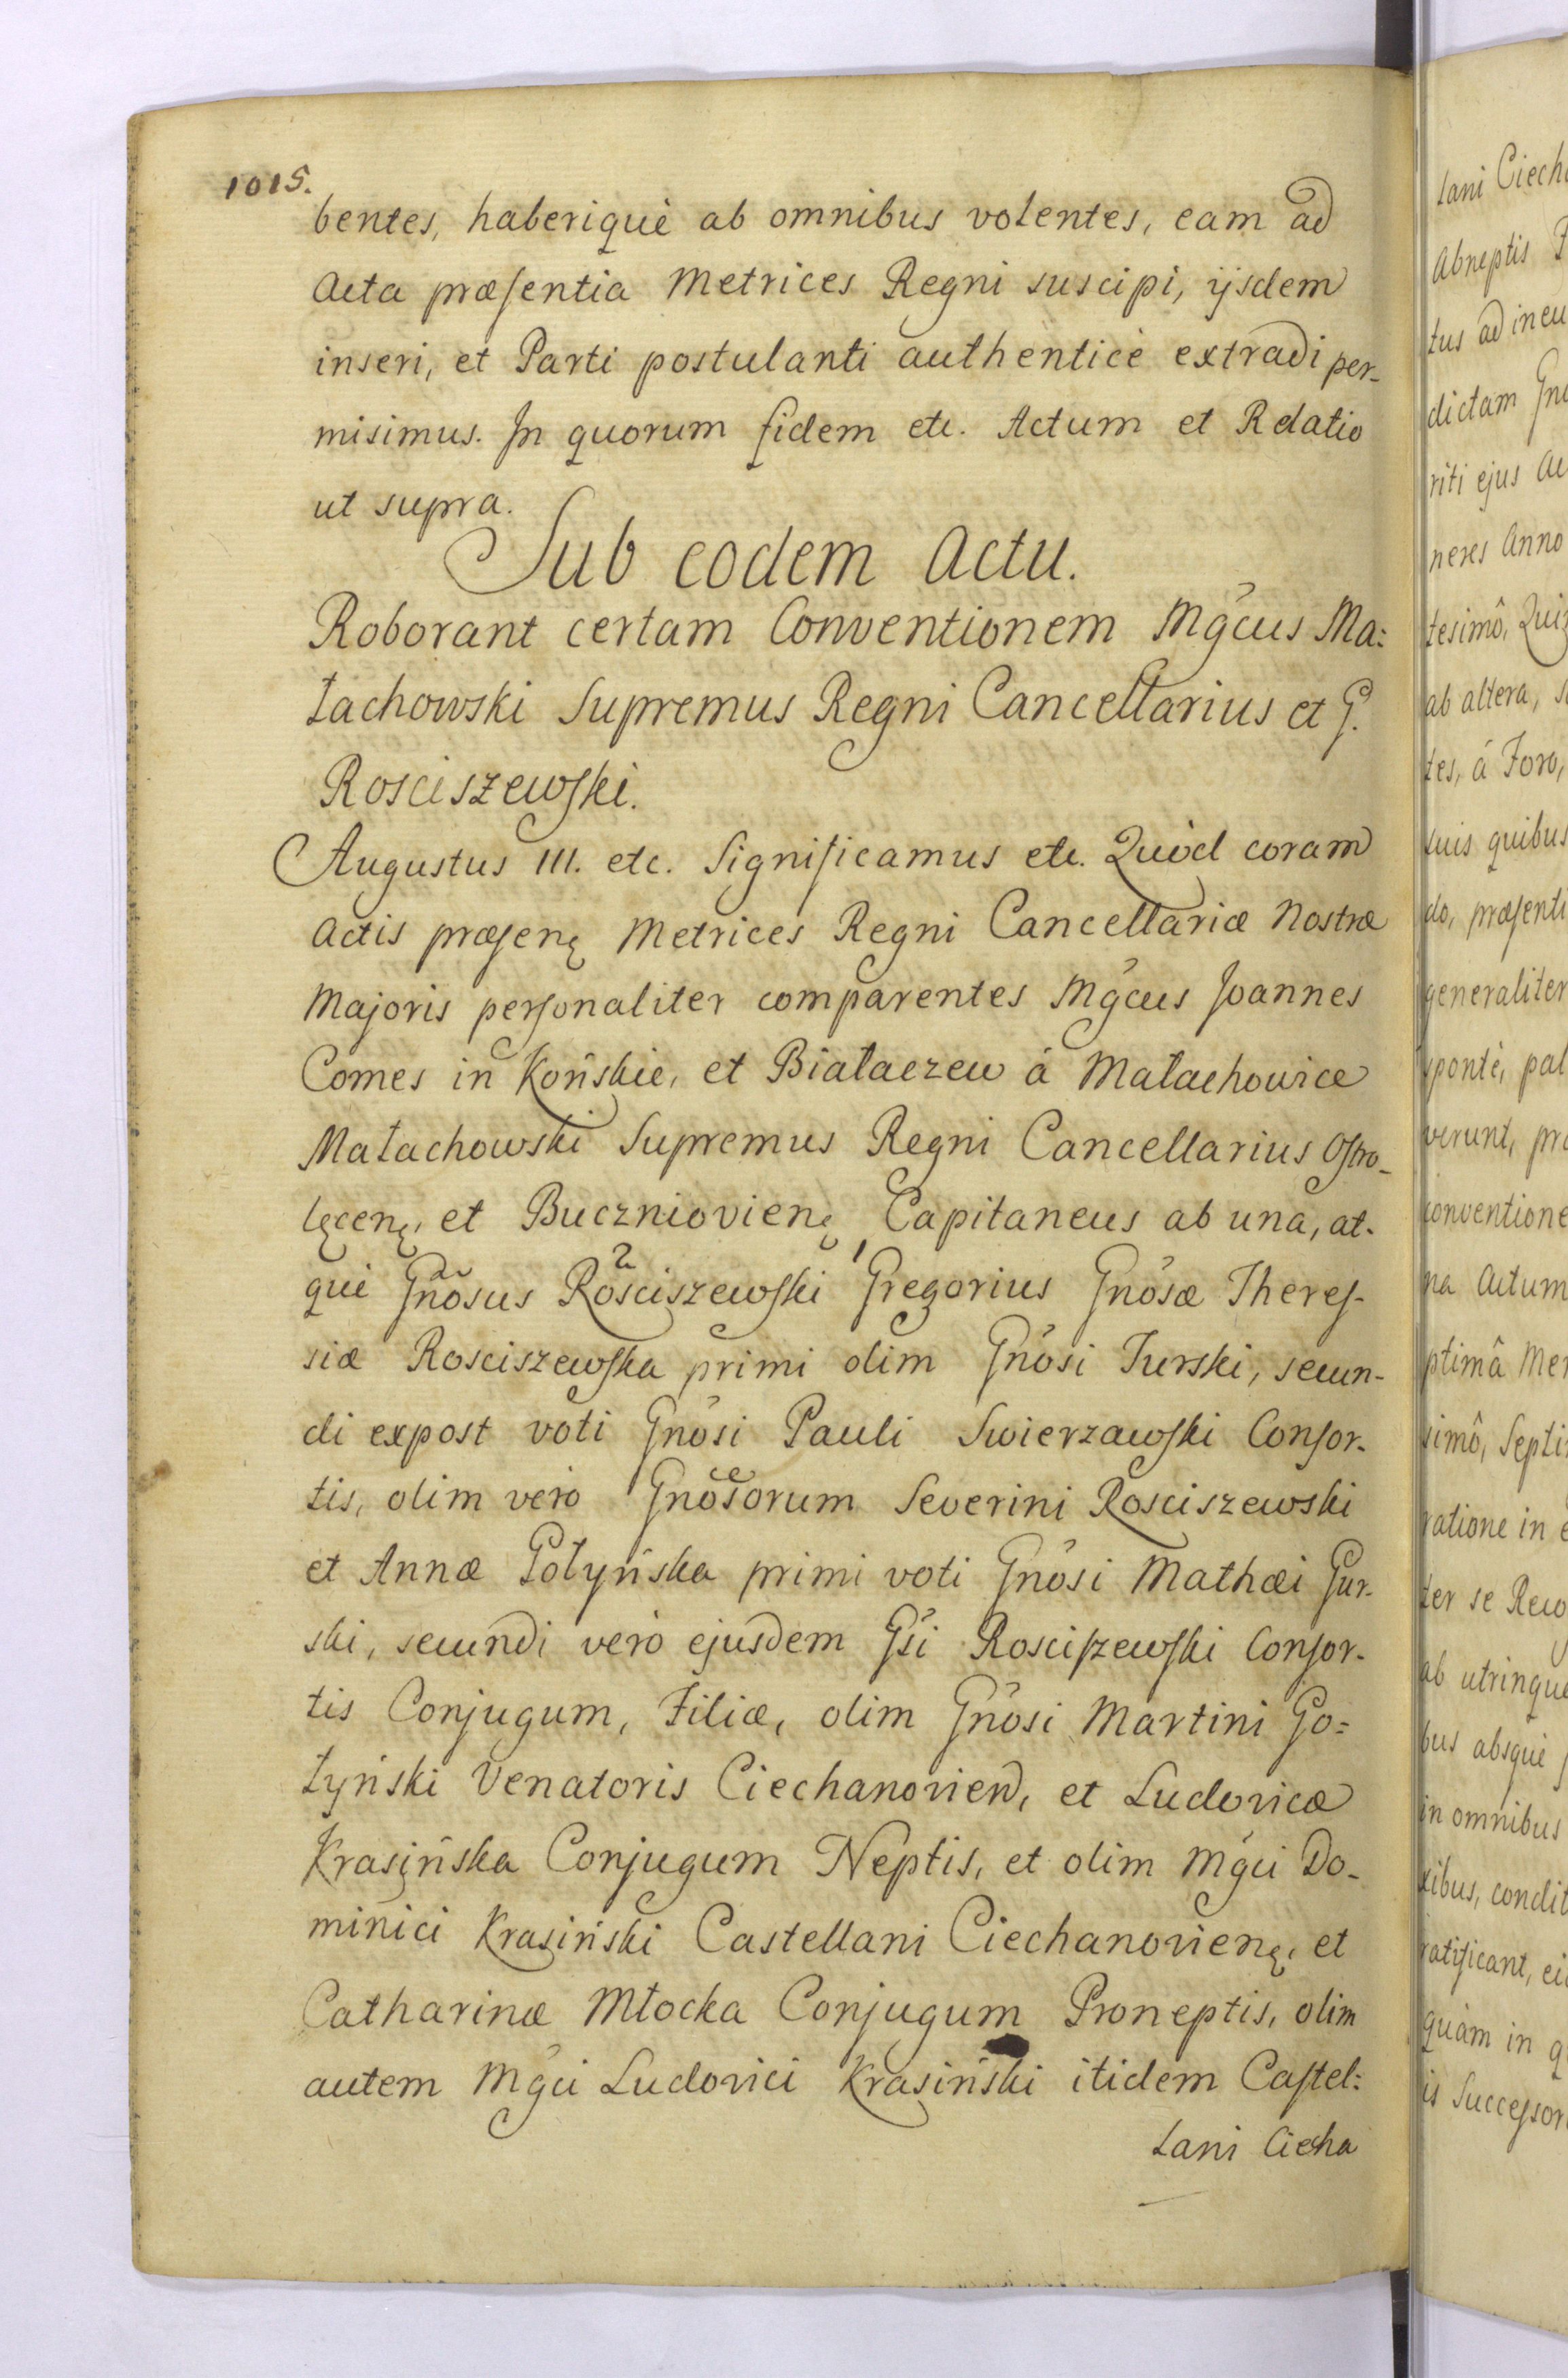 1015.
bentes, haberiquè ab omnibus volentes, eam ad
Acta præsentia Metrices Regni suscipi, ijsdem
inseri, et Parti postulanti authenticè extradi per-
misimus. In quorum fidem etc. Actum et Relatio
ut supra.
Sub eodem Actu.
Roborant certam Conventionem Mg̃cus Ma:
łachowski Supremus Regni Cancellarius et G.
Rosciszewski.
Augustus III. etc. Significamus etc. Quòd coram
Actis præsenę Metrices Regni Cancellariæ Nostræ
Majoris personaliter comparentes Mg̃cus Joannes
Comes in Końskie, et Białaczew á Małachowice
Małachowski Supremus Regni Cancellarius Ostro-
lęcenę, et Buczniovienę Capitaneus ab una, at-
què Gñosus 2 Rosciszewski 1 Gregorius Gñosæ Theres-
siæ Rosciszewska primi olim Gñosi Turski, secun-
di expost voti Gñosi Pauli Swierzawski Consor-
tis, olim verò Gñosorum Severini Rosciszewski
et Annæ Gołyńska primi voti Gñosi Mathæi Gur-
ski, secundi verò ejusdem Gsi Rosciszewski Consor-
tis Conjugum, Filiæ, olim Gñosi Martini Go=
łyński Venatoris Ciechanovien, et Ludovicæ
Krasińska Conjugum Neptis, et olim Mg̃ci Do-
minici Krasiński Castellani Ciechanovienę, et
Catharinæ Młocka Conjugum Proneptis, olim
autem Mg̃ci Ludovici Krasiński itidem Castel:
lani Ciecha
lani Ciech
Abneptis
tus ad ineu
dictam Gno
riti ejus
neres Anno
tesimô,
ab altera,
tes, á Foro,
suis quibus
do, præsenti
generaliter
spontè, pal
verunt, pro
conventione
na Actum
ptimâ Men
simô, Septi
ratione in
ter se
ab utrinque
bus absquè
in omnibus
xibus, condit
ratificant,
quàm in
is Successor